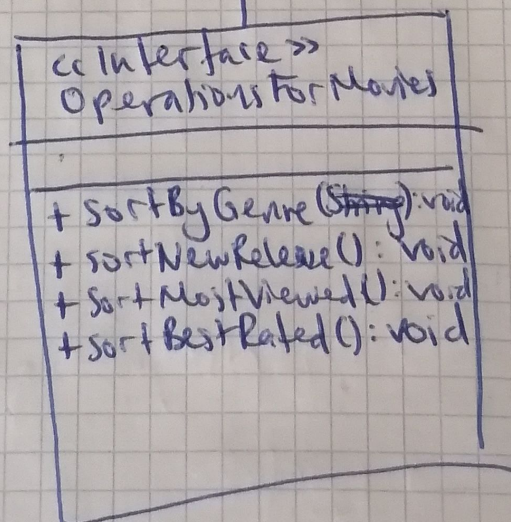 << Interface >>
OperationsForMovies
+ SortByGenre(String): void
+ SortNewRelease(): void
+ SortMostViewed(): void
+ SortBestRated(): void